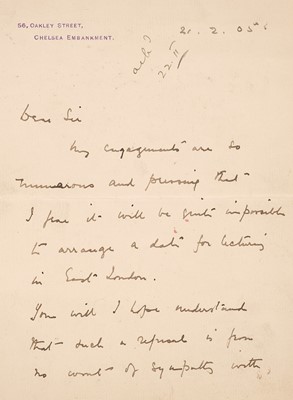 56, OAKLEY STREET,
CHELSEA EMBANKMENT.
21. 2. 05
22
Dear Sir
My engagements are so
numerous and pressing that
I fear it will be quite impossible
to arrange a date for lecturing
in East London.
You will I hope understand
that such a refusal is from
no want of sympathy with